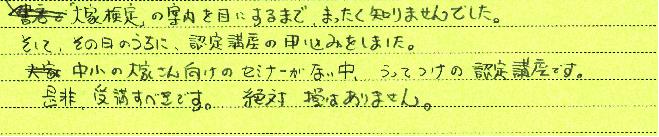 「大家検定」の案内を目にするまで、まったく知りませんでした。
そして、その日のうちに、認定講座の申込みをしました。
中小の大家さん向けのセミナーがない中、うってつけの認定講座です。
是非、受講すべきです。 絶対 損はありません。